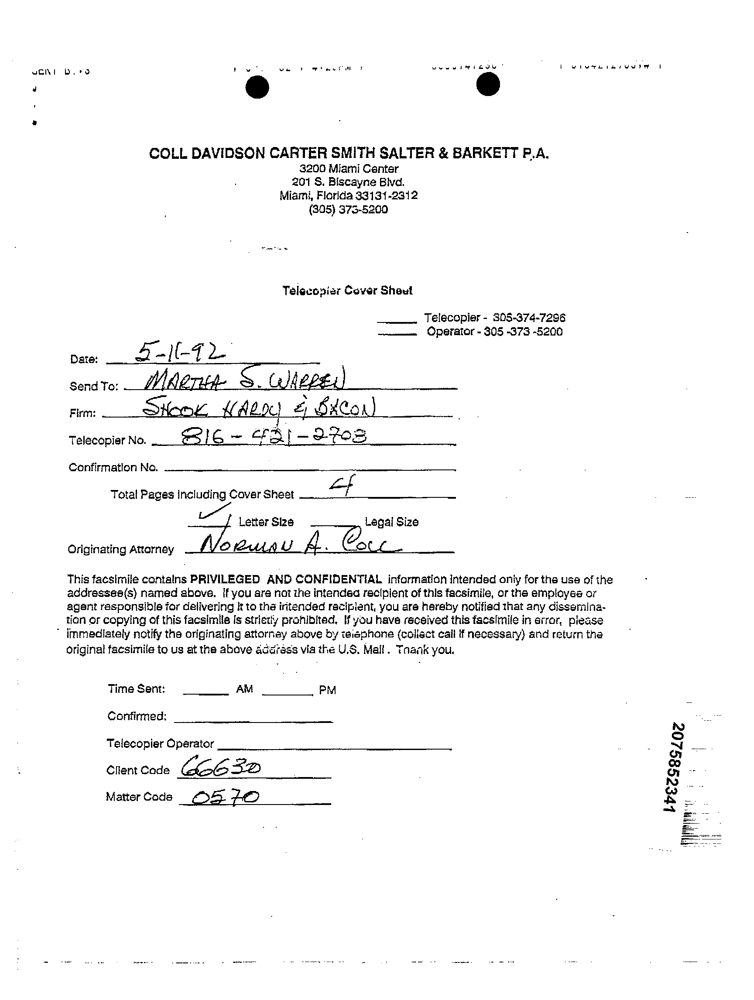 COLL DAVIDSON CARTER SMITH SALTER & BARKETT P.A.
3200 Miami Center
201 S. Biscayne Blvd.
Miami, Florida 33131-2312
(305) 373-5200
Telecopier Cover Sheet
Telecopier - 305-374-7296
Operator - 305 -373 -5200
Date: 5-11-92
Send To: MARTHA S. WARREN
Firm: SHOOK HARDY & BACON
Telecopier No. 816-421-2703
Confirmation No.
Total Pages Including Cover Sheet 4
✓ Letter Size Legal Size
Originating Attorney NORMAN A. COLL
This facsimile contains PRIVILEGED AND CONFIDENTIAL information intended only for the use of the
addressee(s) named above. If you are not the intended recipient of this facsimile, or the employee or
agent responsible for delivering it to the intended recipient, you are hereby notified that any dissemina-
tion or copying of this facsimile is strictly prohibited. If you have received this facsimile in error, please
immediately notify the originating attorney above by telephone (collect call if necessary) and return the
original facsimile to us at the above address via the U.S. Mail . Thank you.
Time Sent: AM PM
Confirmed:
Telecopier Operator
Client Code 66630
Matter Code 0570
2075852341